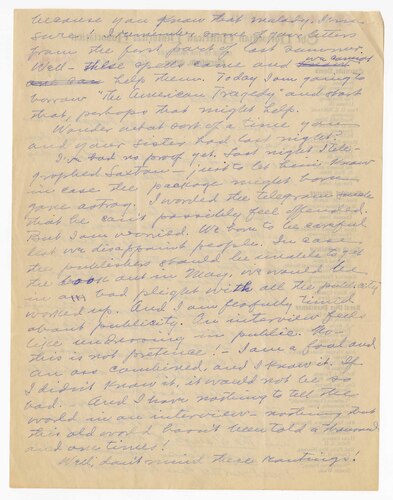 because you know that malady. I'm
sure I remember one of your letters
from the first part of last summer.
Well - these spells come and we cannot
help them. Today I am going to
borrow "The American Tragedy" and start
that, perhaps that might help.
Wonder what sort of a time you
and your sister had last night?
I've had no proof yet. Last night I tele-
graphed Saxton - just to let him know
in case the package might have
gone astray. I worded the telegram
that he can't possibly feel offended.
But I am worried. We have to be careful
lest we disappoint people. In case
the publishers should be unable to get
the book out in May, we would be
in a bad plight with all the publicity
worked up. And I am fearfully timid
about publicity. An interview feels
like undressing in public. No -
this is not pretence! - I am a fool and
an ass combined, and I know it. If
I didn't know it, it would not be so
bad. - And I have nothing to tell the
world in an interview - nothing that
this old world hasn't been told a thousand
and one times!
Well, don't mind these rantings!